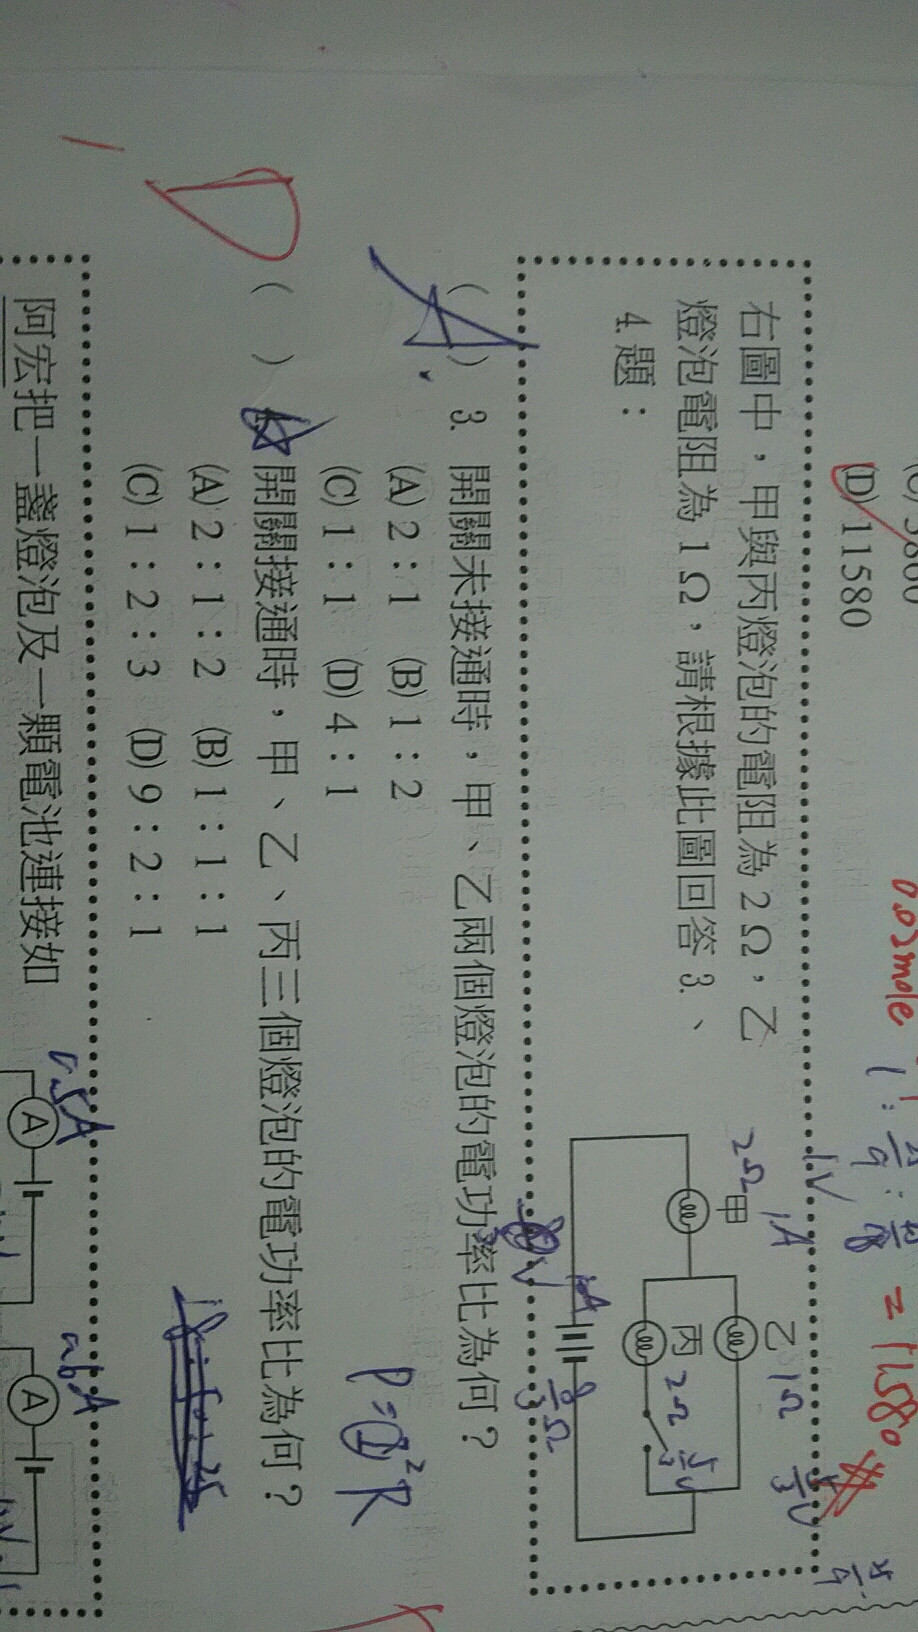 (D) 11580
0.03mole
= 11580
右圖中，甲與丙燈泡的電阻為 2 Ω，乙
燈泡電阻為 1 Ω，請根據此圖回答 3.、
4.題：
2Ω 甲 1A
乙 1Ω
丙 2Ω
1V
A ( ) 3. 開關未接通時，甲、乙兩個燈泡的電功率比為何？
(A) 2：1 (B) 1：2
(C) 1：1 (D) 4：1
P = I²R
D ( ) 開關接通時，甲、乙、丙三個燈泡的電功率比為何？
(A) 2：1：2 (B) 1：1：1
(C) 1：2：3 (D) 9：2：1
阿宏把一盞燈泡及一顆電池連接如
0.5A
A
A